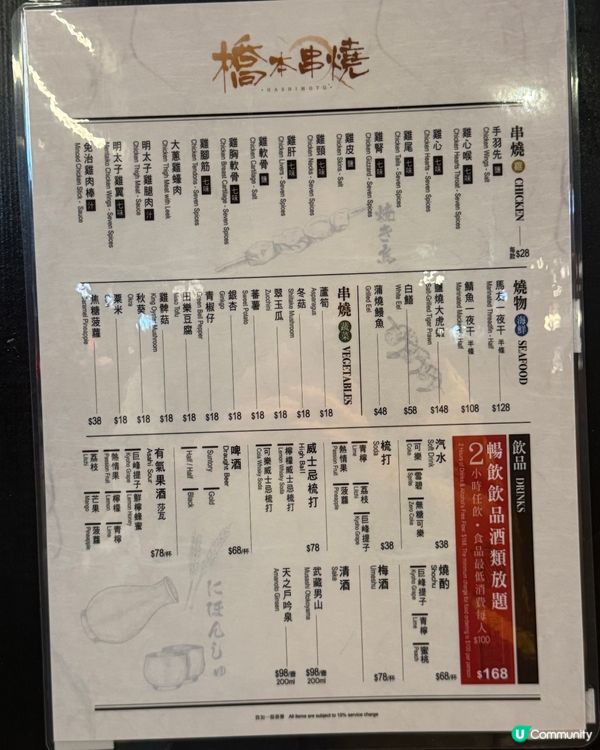 橋本串燒
HASHIMOTO
串燒 雞 CHICKEN 每款 $28
手羽先 鹽
Chicken Wings - Salt
雞心喉 七味
Chicken Hearts Throat - Seven Spices
雞心 七味
Chicken Hearts - Seven Spices
雞尾 七味
Chicken Tails - Seven Spices
雞腎 七味
Chicken Gizzard - Seven Spices
雞皮 鹽
Chicken Skins - Salt
雞頸 七味
Chicken Necks - Seven Spices
雞肝 汁
Chicken Livers - Seven Spices
雞軟骨 鹽
Chicken Cartilage - Salt
雞胸軟骨 七味
Chicken Breast Cartilage - Seven Spices
雞腳筋 七味
Chicken Tendons - Seven Spices
大蔥雞蠔肉
Chicken Thigh Meat with Leek
明太子雞腿肉 汁
Chicken Thigh Meat - Sauce
明太子雞翼 七味
Mentaiko Chicken Wings - Seven Spices
免治雞肉棒 汁
Minced Chicken Stick - Sauce
焼き鳥
燒物 海鮮 SEAFOOD
馬友一夜干 半條 $128
Marinated Threadfin - Half
鯖魚一夜干 半條 $108
Marinated Mackerel - Half
鹽燒大虎蝦 $148
Salt-Grilled Tiger Prawn
白鱔 $58
White Eel
蒲燒鰻魚 $48
Grilled Eel
串燒 蔬菜 VEGETABLES
蘆筍 $18
Asparagus
冬菇 $18
Shiitake Mushroom
翠玉瓜 $18
Zucchini
蕃薯 $18
Sweet Potato
銀杏 $18
Ginkgo
青椒仔 $18
Green Bell Pepper
田樂豆腐 $18
Miso Tofu
雞髀菇 $18
King Oyster Mushroom
秋葵 $18
Okra
粟米 $18
Corn
焦糖菠蘿 $38
Caramel Pineapple
飲品 DRINKS
暢飲飲品酒類放題
2小時任飲．食品最低消費每人$100
$168
汽水 $38
Soft Drink
可樂 Coke
雪碧 Sprite
無糖可樂 Zero Coke
梳打 $38
Soda
青檸 Lime
荔枝 Litchi
巨峰提子 Kyoho Grape
熱情果 Passion Fruit
菠蘿 Pineapple
威士忌梳打 $78
High Ball
檸檬威士忌梳打
Lemon Whisky Soda
可樂威士忌梳打
Cola Whisky Soda
啤酒 $68/杯
Draught Beer
Suntory
Gold
Half / Half
Black
有氣果酒 莎瓦 $78/杯
Asahi Sour
巨峰提子 Kyoho Grape
鮮檸蜂蜜 Lemon Honey
熱情果 Passion Fruit
檸檬 Lemon
青檸 Lime
荔枝 Litchi
芒果 Mango
菠蘿 Pineapple
燒酌 $68/杯
Shochu
巨峰提子 Kyoho Grape
青檸 Lime
蜜桃 Peach
梅酒 $78/杯
Umeshu
清酒
Sake
武蔵男山 $98/壺 200ml
Musashi Otokoyama
天之戶吟泉 $98/壺 200ml
Amanoto Ginsen
にほんしゅ
另加一服務費 All items are subject to 10% service charge
U Community